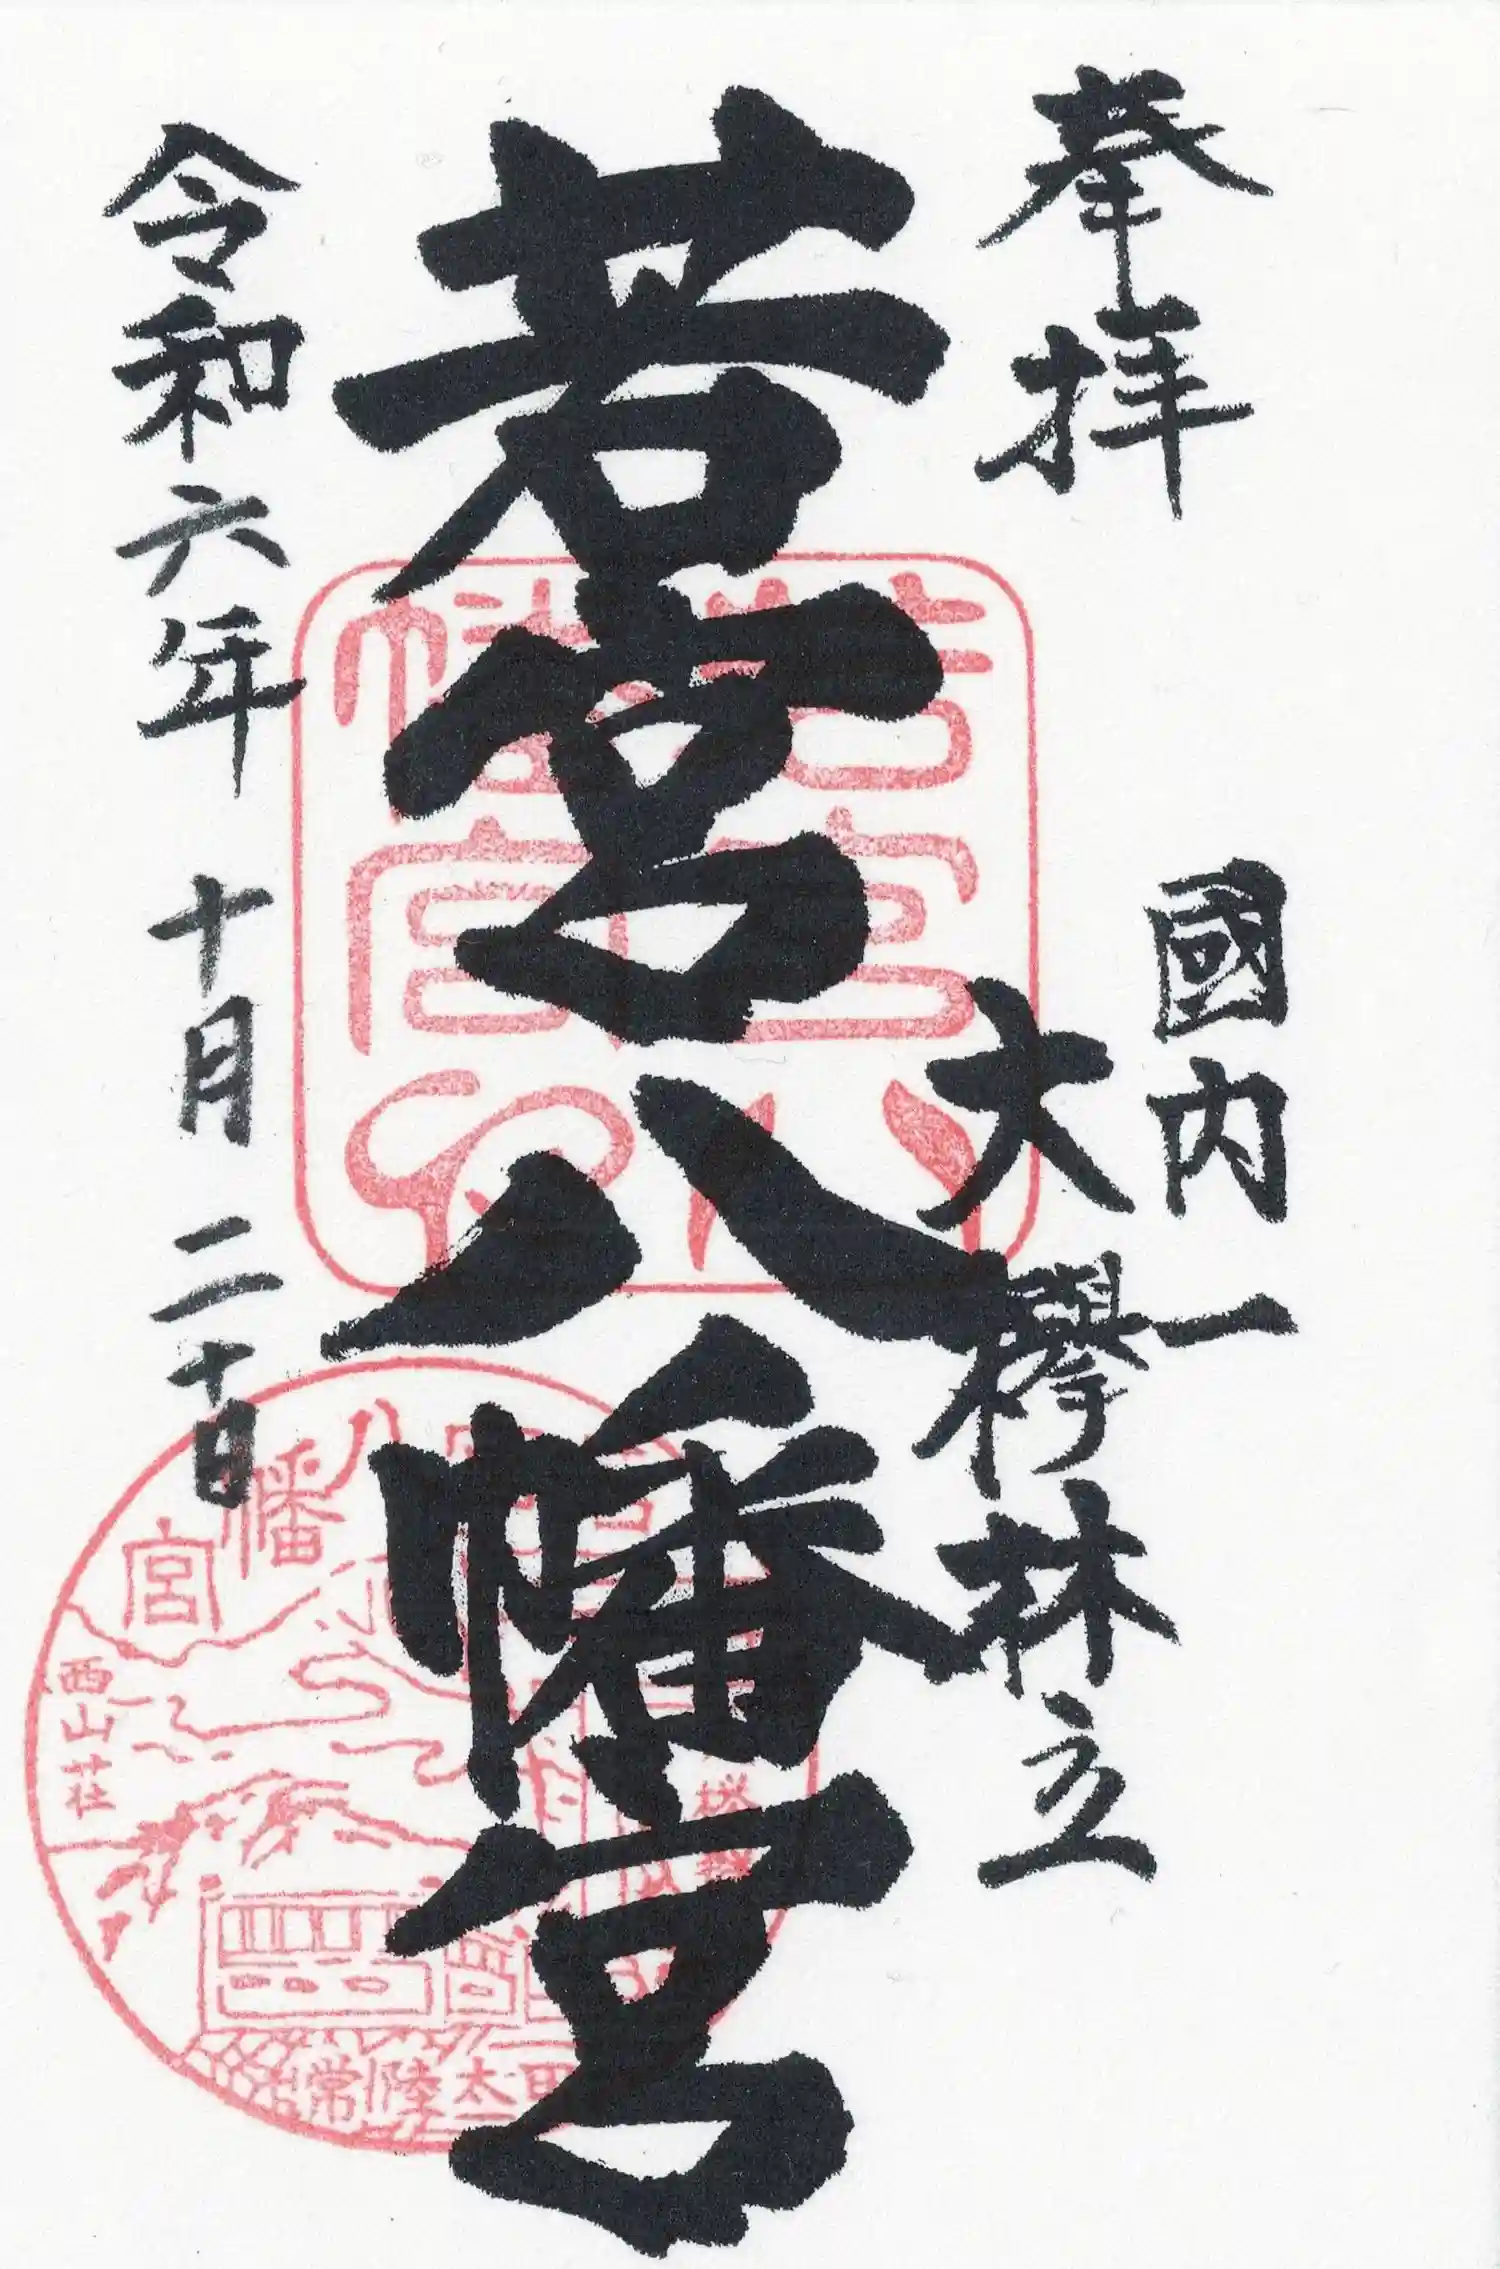 奉拝
國内一
大欅林立
若宮八幡宮
令和六年 十月 二十日
八幡宮
西山荘
常陸太田